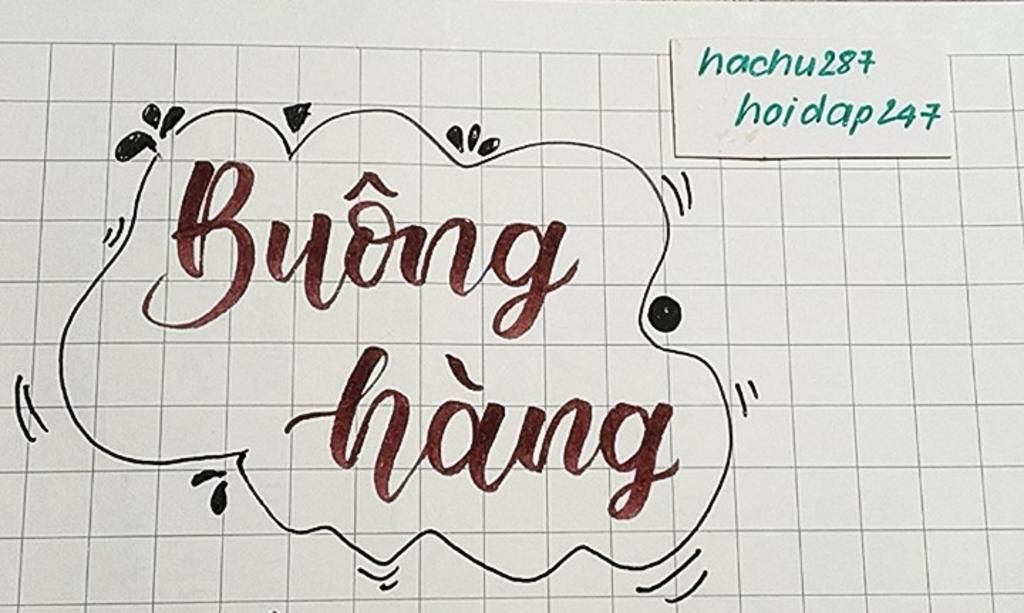 hachu287
hoidap247
Buông
hàng